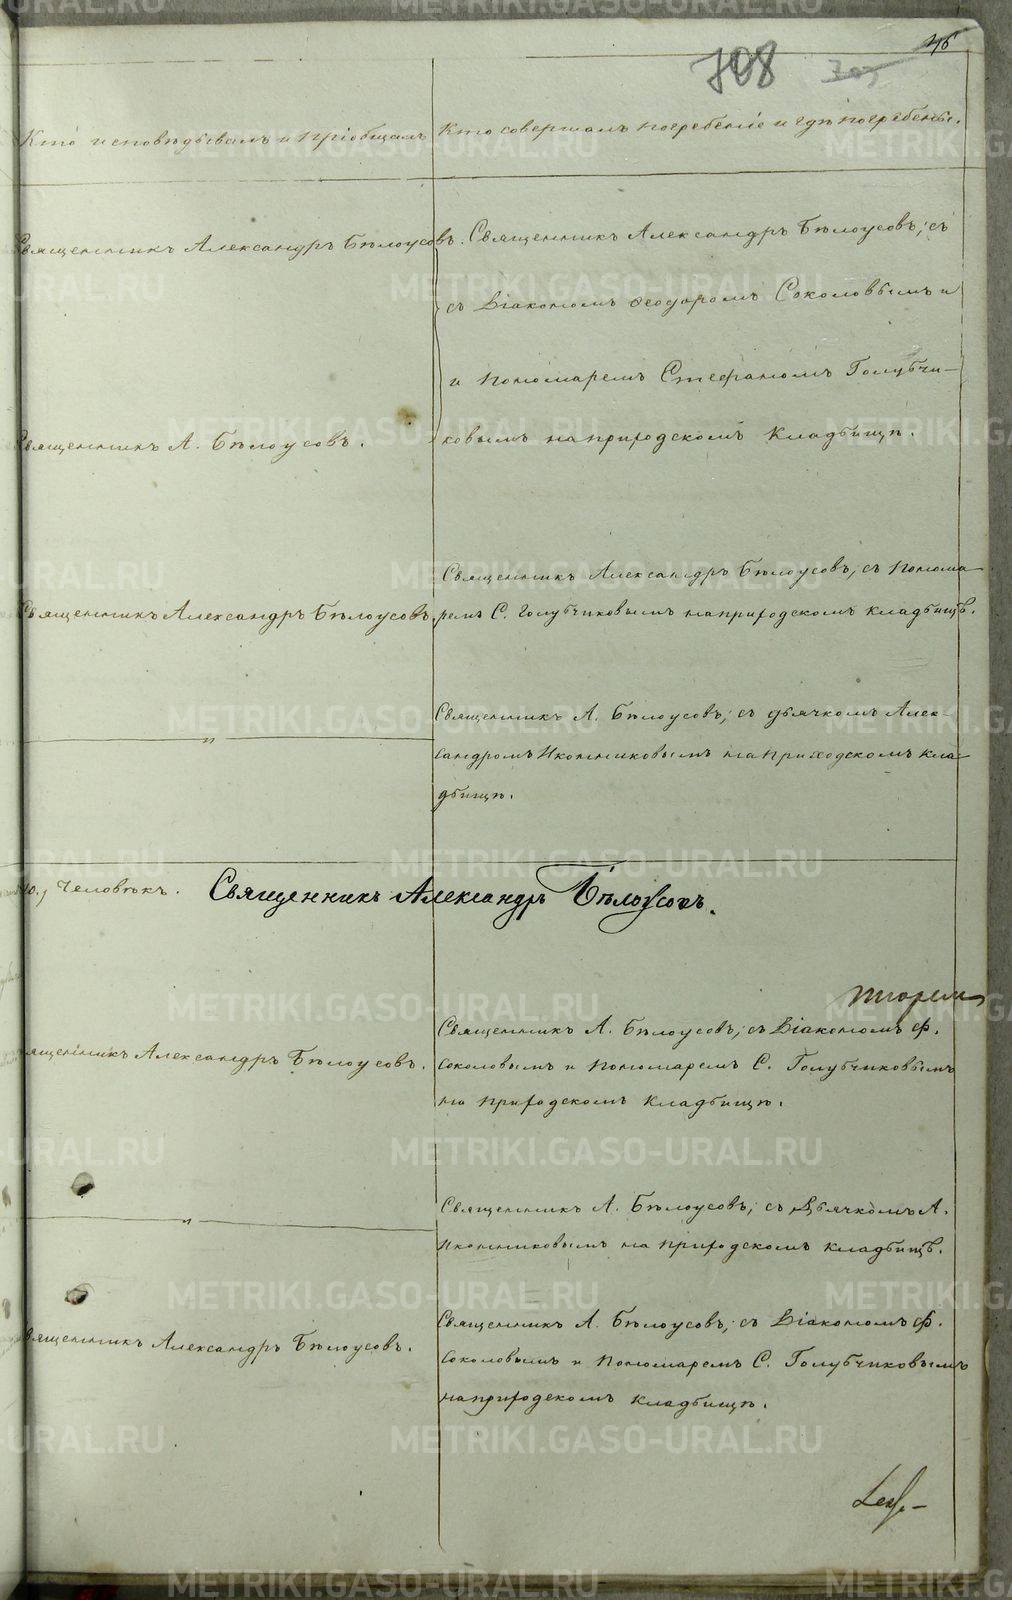 46
708 705
Кто исповѣдывалъ и пріобщалъ
Кто совершалъ погребеніе и гдѣ погребены.
Священникъ Александръ Бѣлоусовъ.
Священникъ Александръ Бѣлоусовъ, съ
съ Діакономъ Феодоромъ Соколовымъ и
и Пономаремъ Стефаномъ Голубчи-
Священникъ А. Бѣлоусовъ.
ковымъ на приходскомъ кладбищѣ.
Священникъ Александръ Бѣлоусовъ.
Священникъ Александръ Бѣлоусовъ, съ Понома-
ремъ С. Голубчиковымъ на приходскомъ кладбищѣ.
— " —
Священникъ А. Бѣлоусовъ, съ дьячкомъ Алек-
сандромъ Иконниковымъ на приходскомъ кла-
дбищѣ.
10., человѣкъ. Священникъ Александръ Бѣлоусовъ.
Священникъ Александръ Бѣлоусовъ.
Священникъ А. Бѣлоусовъ, съ Діакономъ Ф.
Соколовымъ и Пономаремъ С. Голубчиковымъ
на приходскомъ кладбищѣ.
— " —
Священникъ А. Бѣлоусовъ, съ Дьячкомъ А.
Иконниковымъ на приходскомъ кладбищѣ.
Священникъ Александръ Бѣлоусовъ.
Священникъ А. Бѣлоусовъ, съ Діакономъ Ф.
Соколовымъ и Пономаремъ С. Голубчиковымъ
на приходскомъ кладбищѣ.
METRIKI.GASO-URAL.RU